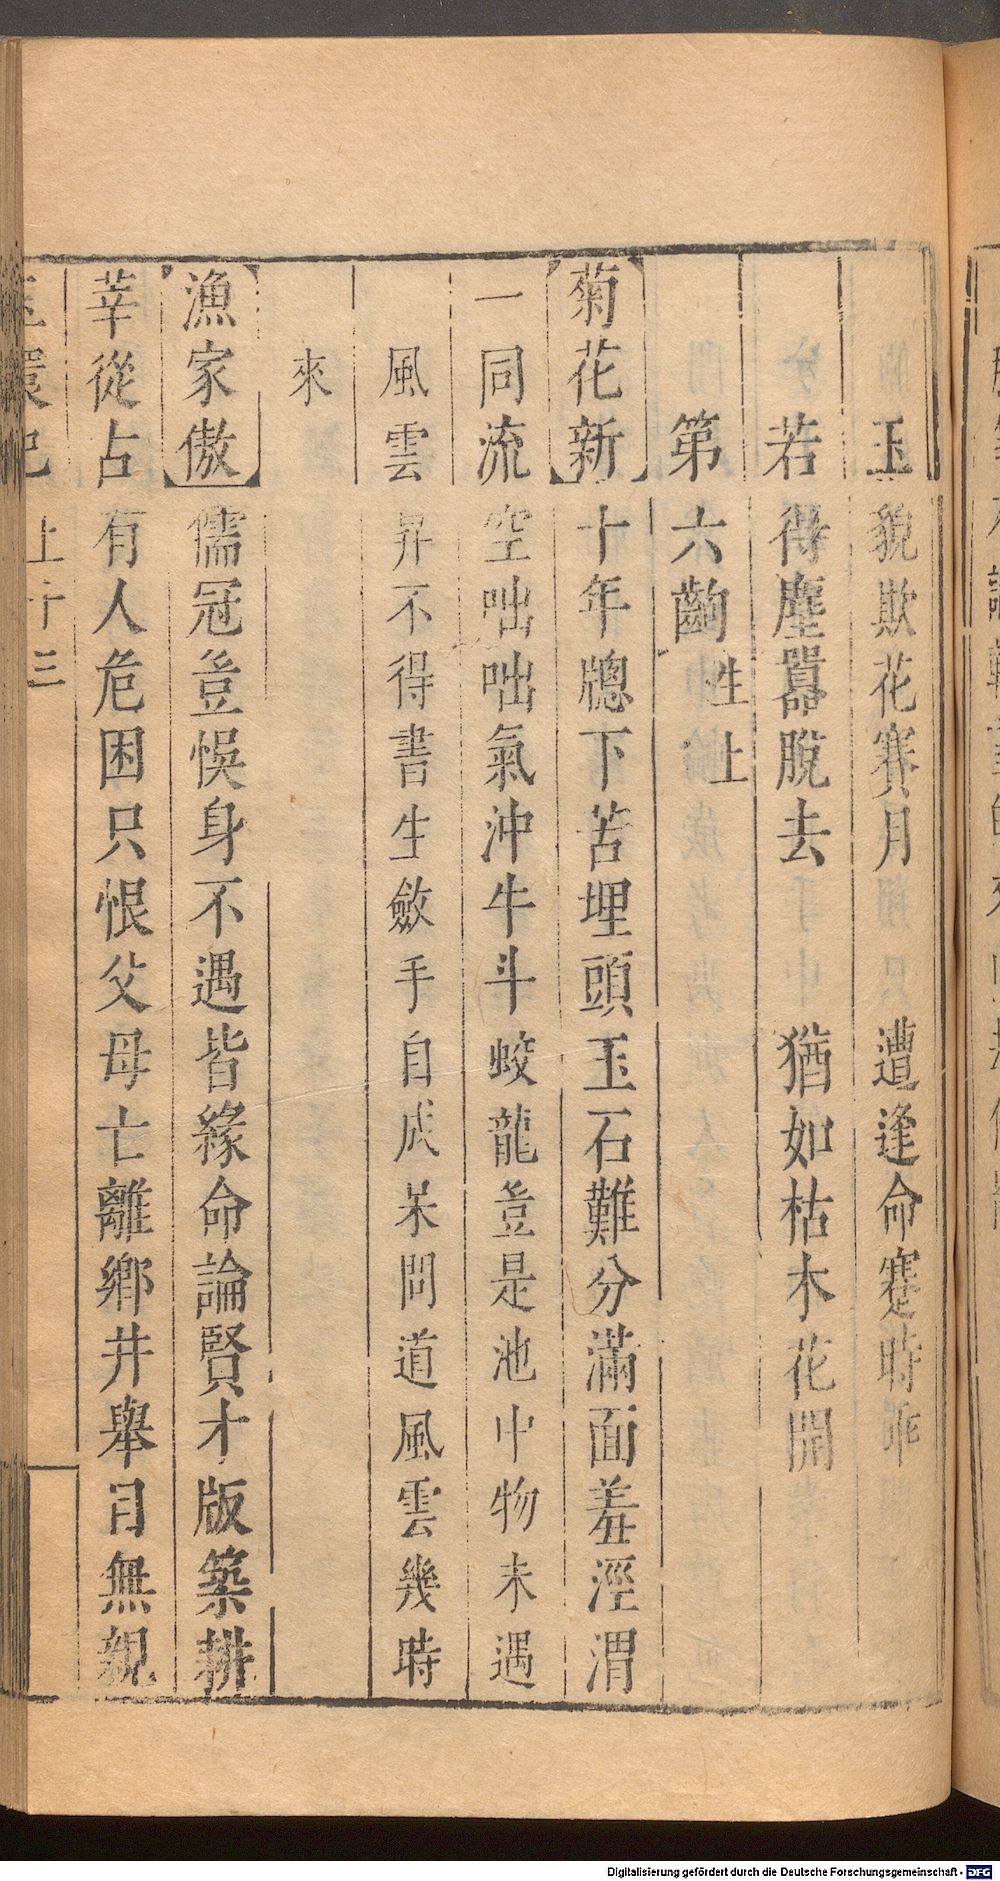 玉貌欺花賽月　遭逢命蹇時乖
若得塵囂脫去　猶如枯木花開
第六齣 生上
【菊花新】十年牕下苦埋頭玉石難分滿面羞涇渭
一同流空咄咄氣沖牛斗蛟龍豈是池中物未遇
風雲昇不得書生斂手自成呆問道風雲幾時
來
【漁家傲】儒冠豈悞身不遇皆緣命論賢才版築耕
莘從占有人危困只恨父母亡離鄉井舉目無親
玉環記 上 十三
Digitalisierung gefördert durch die Deutsche Forschungsgemeinschaft - DFG